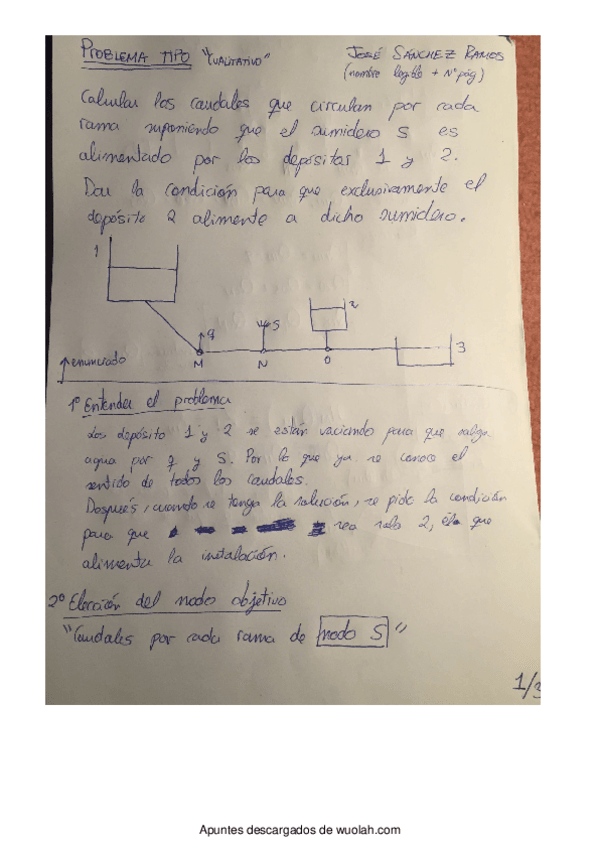 PROBLEMA TIPO "CUALITATIVO"
JOSÉ SÁNCHEZ RAMOS
(nombre + Nº pág)
Calcular los caudales que circulan por cada
rama suponiendo que el sumidero S es
alimentado por los depósitos 1 y 2.
Dar la condición para que exclusivamente el
depósito 2 alimente a dicho sumidero.
1
2
q
S
3
M
N
O
↑enunciado
1º Entender el problema
Los depósito 1 y 2 se están vaciando para que salga
agua por q y S. Por lo que ya se conoce el
sentido de todos los caudales.
Después, cuando se tenga la solución, se pide la condición
para que sea solo 2, el que
alimenta la instalación.
2º Elección del nodo objetivo
"Caudales por cada rama de nodo S"
1/3
Apuntes descargados de wuolah.com